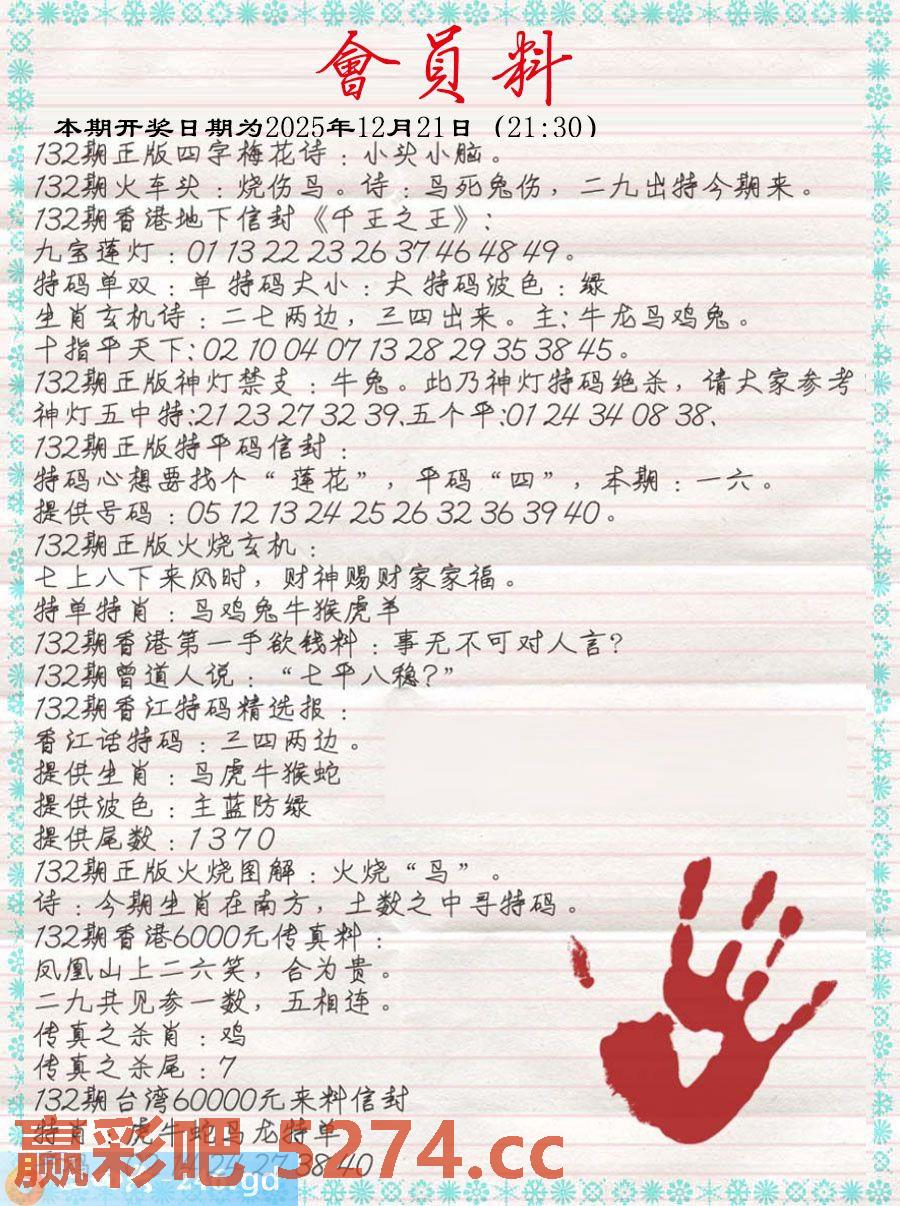 會員料
本期开奖日期为2025年12月21日（21:30）
132期正版四字梅花诗：小头小脑。
132期火车头：烧伤鸟。诗：鸟死兔伤，二九出特今期来。
132期香港地下信封《千王之王》：
九宝莲灯：01 13 22 23 26 37 46 48 49。
特码单双：单 特码大小：大 特码波色：绿
生肖玄机诗：二七两边，三四出来。主：牛龙马鸡兔。
十指平天下：02 10 04 07 13 28 29 35 38 45。
132期正版神灯禁支：牛兔。此乃神灯特码绝杀，请大家参考
神灯五中特：21 23 27 32 39、五个平：01 24 34 08 38、
132期正版特平码信封：
特码心想要找个“莲花”，平码“四”，本期：一六。
提供号码：05 12 13 24 25 26 32 36 39 40。
132期正版火烧玄机：
七上八下来风时，财神赐财家家福。
特单特肖：马鸡兔牛猴虎羊
132期香港第一手欲钱料：事无不可对人言？
132期曾道人说：“七平八稳？”
132期香江特码精选报：
香江话特码：三四两边。
提供生肖：马虎牛猴蛇
提供波色：主蓝防绿
提供尾数：1 3 7 0
132期正版火烧图解：火烧“鸟”。
诗：今期生肖在南方，土数之中寻特码。
132期香港6000元传真料：
凤凰山上二六笑，合为贵。
二九共见参一数，五相连。
传真之杀肖：鸡
传真之杀尾：7
132期台湾60000元来料信封
特肖：虎牛蛇马龙特单
24 27 38 40
赢彩吧 3274.cc